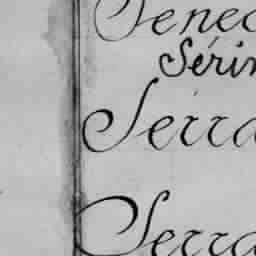 Senec
Sérin
Serra
Serra